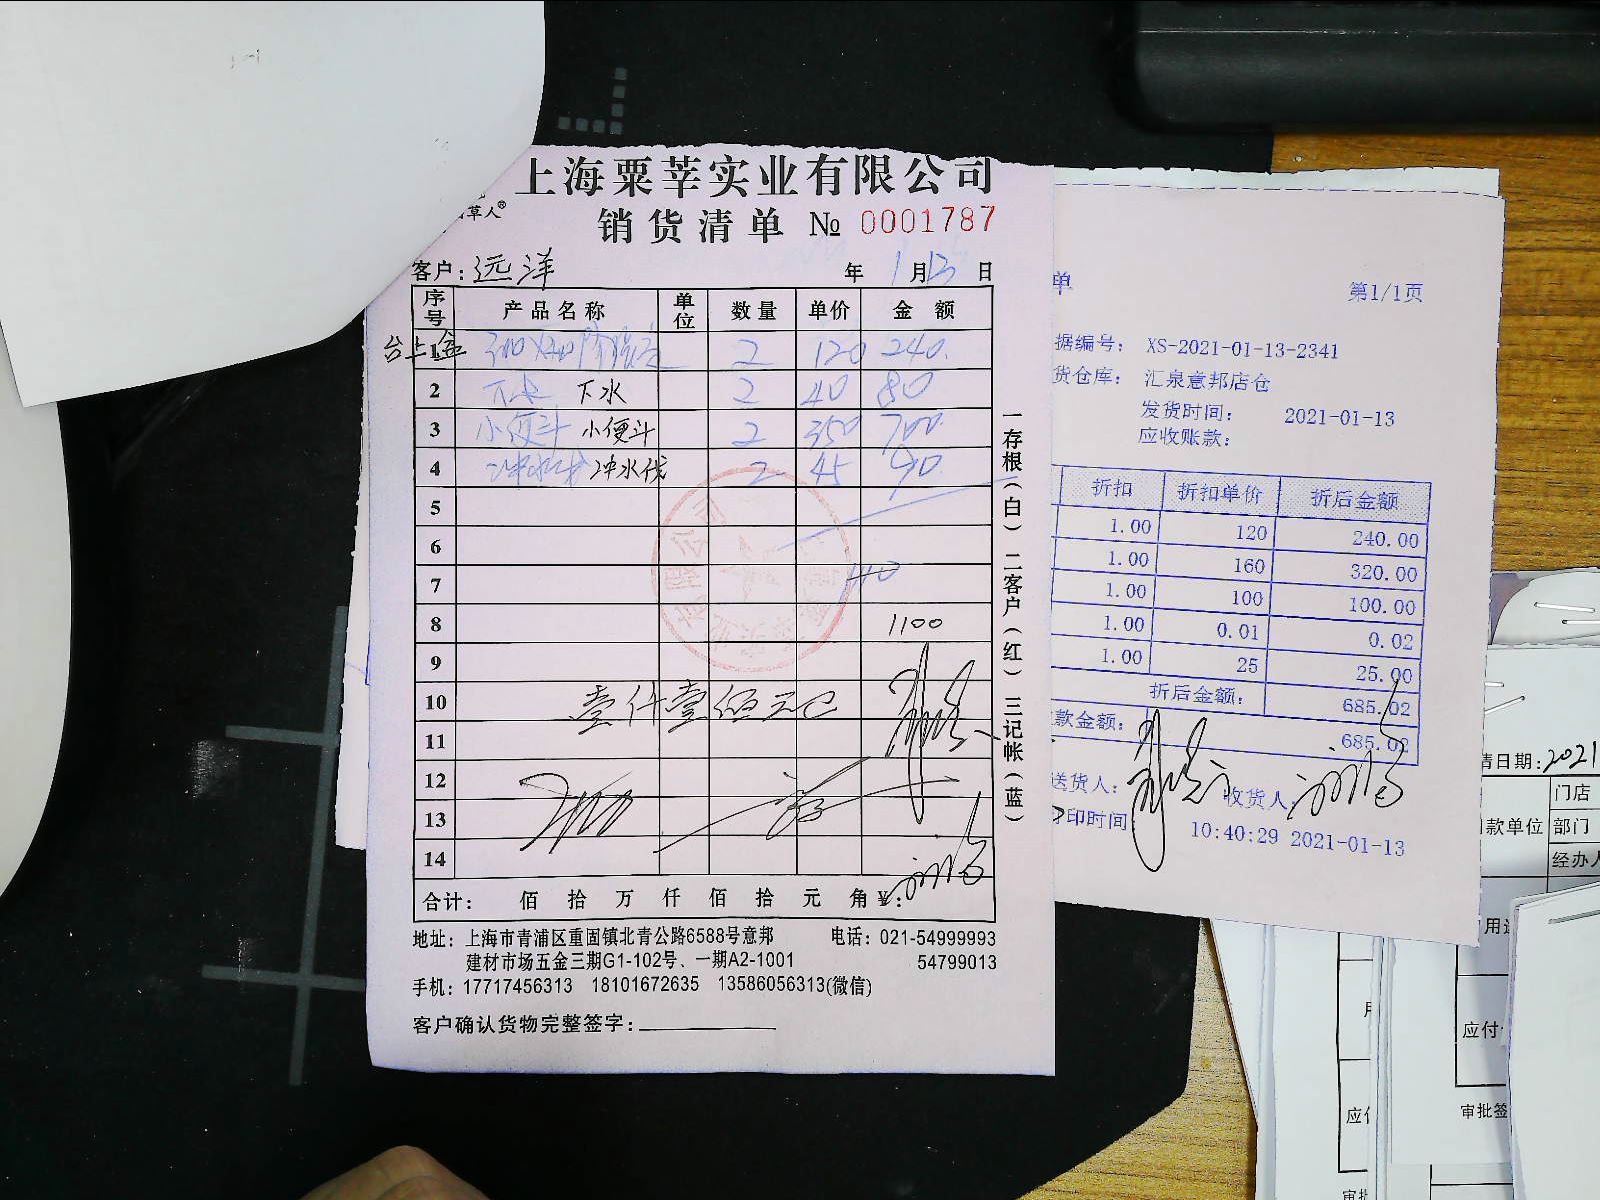 上海粟莘实业有限公司
草人®
销货清单 № 0001787
客户: 远洋 年 1月13日
序号 产品名称 单位 数量 单价 金额
台上盆 1 2 120 240.
2 下水 下水 2 40 80
3 小便斗 小便斗 2 350 700
4 冲水伐 冲水伐 2 45 90
5
6
7 1110
8 1100
9
10 壹仟壹佰元
11
12
13
14
合计: 佰 拾 万 仟 佰 拾 元 角 ¥:
地址: 上海市青浦区重固镇北青公路6588号意邦 电话: 021-54999993
建材市场五金三期G1-102号、一期A2-1001 54799013
手机: 17717456313 18101672635 13586056313(微信)
客户确认货物完整签字:
一存根(白) 二客户(红) 三记帐(蓝)
单 第1/1页
据编号: XS-2021-01-13-2341
货仓库: 汇泉意邦店仓
发货时间: 2021-01-13
应收账款:
折扣 折扣单价 折后金额
1.00 120 240.00
1.00 160 320.00
1.00 100 100.00
1.00 0.01 0.02
1.00 25 25.00
折后金额: 685.02
款金额: 685.02
送货人: 收货人:
印时间 10:40:29 2021-01-13
请日期: 2021
门店
款单位 部门
经办人
用途
应付
审批签